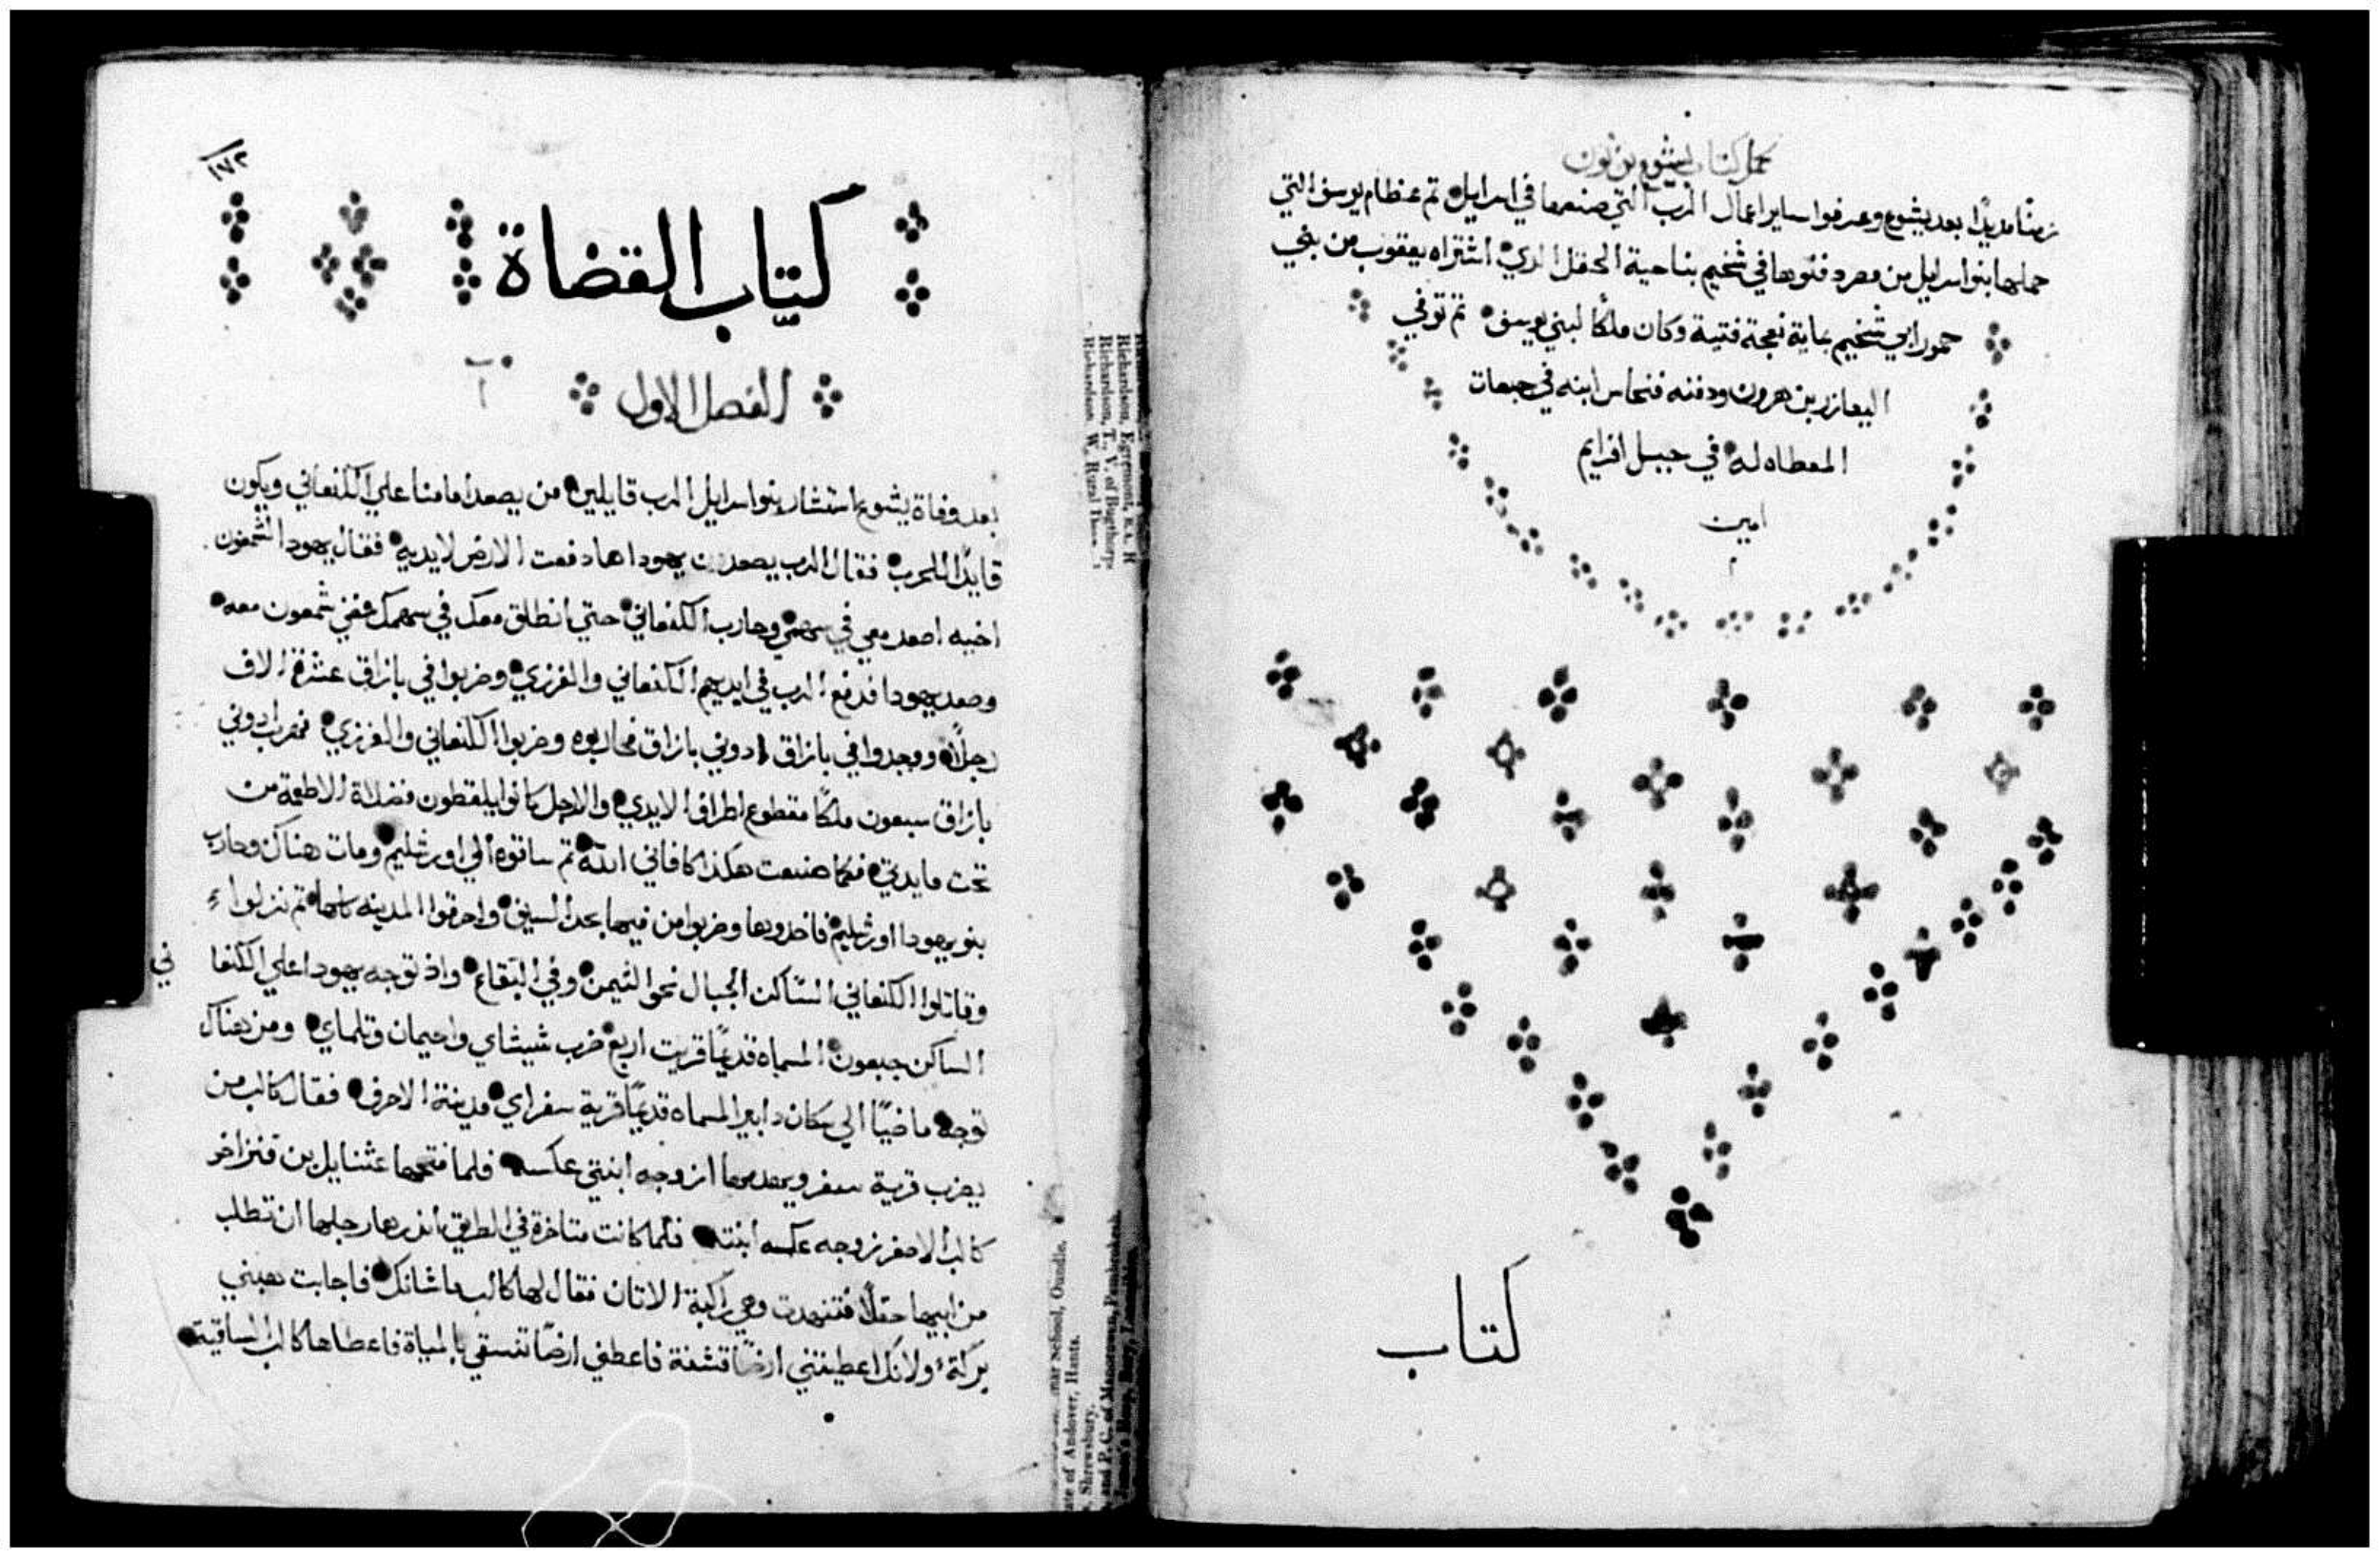 كمل كتاب يشوع بن نون
زمنًا مديدًا بعد يشوع وعرفوا ساير اعمال الرب التي صنعها في اسرايل ثم عظام يوسف التي
حملها بنوا اسرايل من مصر دفنوها في شخيم بناحية الحقل الذي اشتراه يعقوب من بني
حمور ابي شخيم بماية نعجة فتية وكان ملكًا لبني يوسف ثم توفي
اليعازر بن هرون ودفنه فنحاس ابنه في جبعات
المعطاه له في جبل افرايم
امين
كتاب
١٧٢
كتاب القضاة
الفصل الاول
بعد وفاة يشوع استشار بنوا اسرايل الرب قايلين من يصعد امامنا علي الكنعاني ويكون
قايدًا للحرب فقال الرب يصعد يهودا ها دفعت الارض لايديه فقال يهودا لشمعون
اخيه اصعد معي في سهمي وحارب الكنعاني حتي انطلق معك في سهمك فمضي شمعون معه
وصعد يهودا فدفع الرب في ايديهم الكنعاني والفرزي وضربوا في بازاق عشرة الاف
رجلًا ووجدوا في بازاق ادوني بازاق فحاربوه وضربوا الكنعاني والفرزي فهرب ادوني
بازاق سبعون ملكًا مقطوع اطراف الايدي والارجل كانوا يلقطون فضلاة الاطعمة من
تحت مايدتي فكما صنعت هكذا كافاني الله ثم ساقوه الي اورشليم ومات هناك وحارب
بنو يهودا اورشليم فاخدوها وضربوا من فيها بحد السيف واحرقوا المدينه كلها ثم نزلوا
وقاتلوا الكنعاني الساكن الجبال نحو التيمن وفي البقاع واذ توجه يهودا علي الكنعا ني
الساكن جبعون المسماه قديمًا قريت اربع ضرب شيشاي واحيمان وتلماي ومن هناك
توجه ماضيًا الي سكان دابير المسماه قديمًا قرية سفر اي مدينة الاحرف فقال كالب من
يضرب قرية سفر ويهدمها ازوجه ابنتي عكسه فلما فتحها عثنايل بن قنز اخو
كالب الاصغر زوجه عكسه ابنته فلما كانت متاخرة في الطريق انذرها رجلها ان تطلب
من ابيها حقلًا فتنهدت وهي راكبة الاتان فقال لها كالب ما شانك فاجابت هبني
بركة ولانك اعطيتني ارضًا قشفة فاعطني ارضًا تنسقي بالمياة فاعطاها كالب الساقية